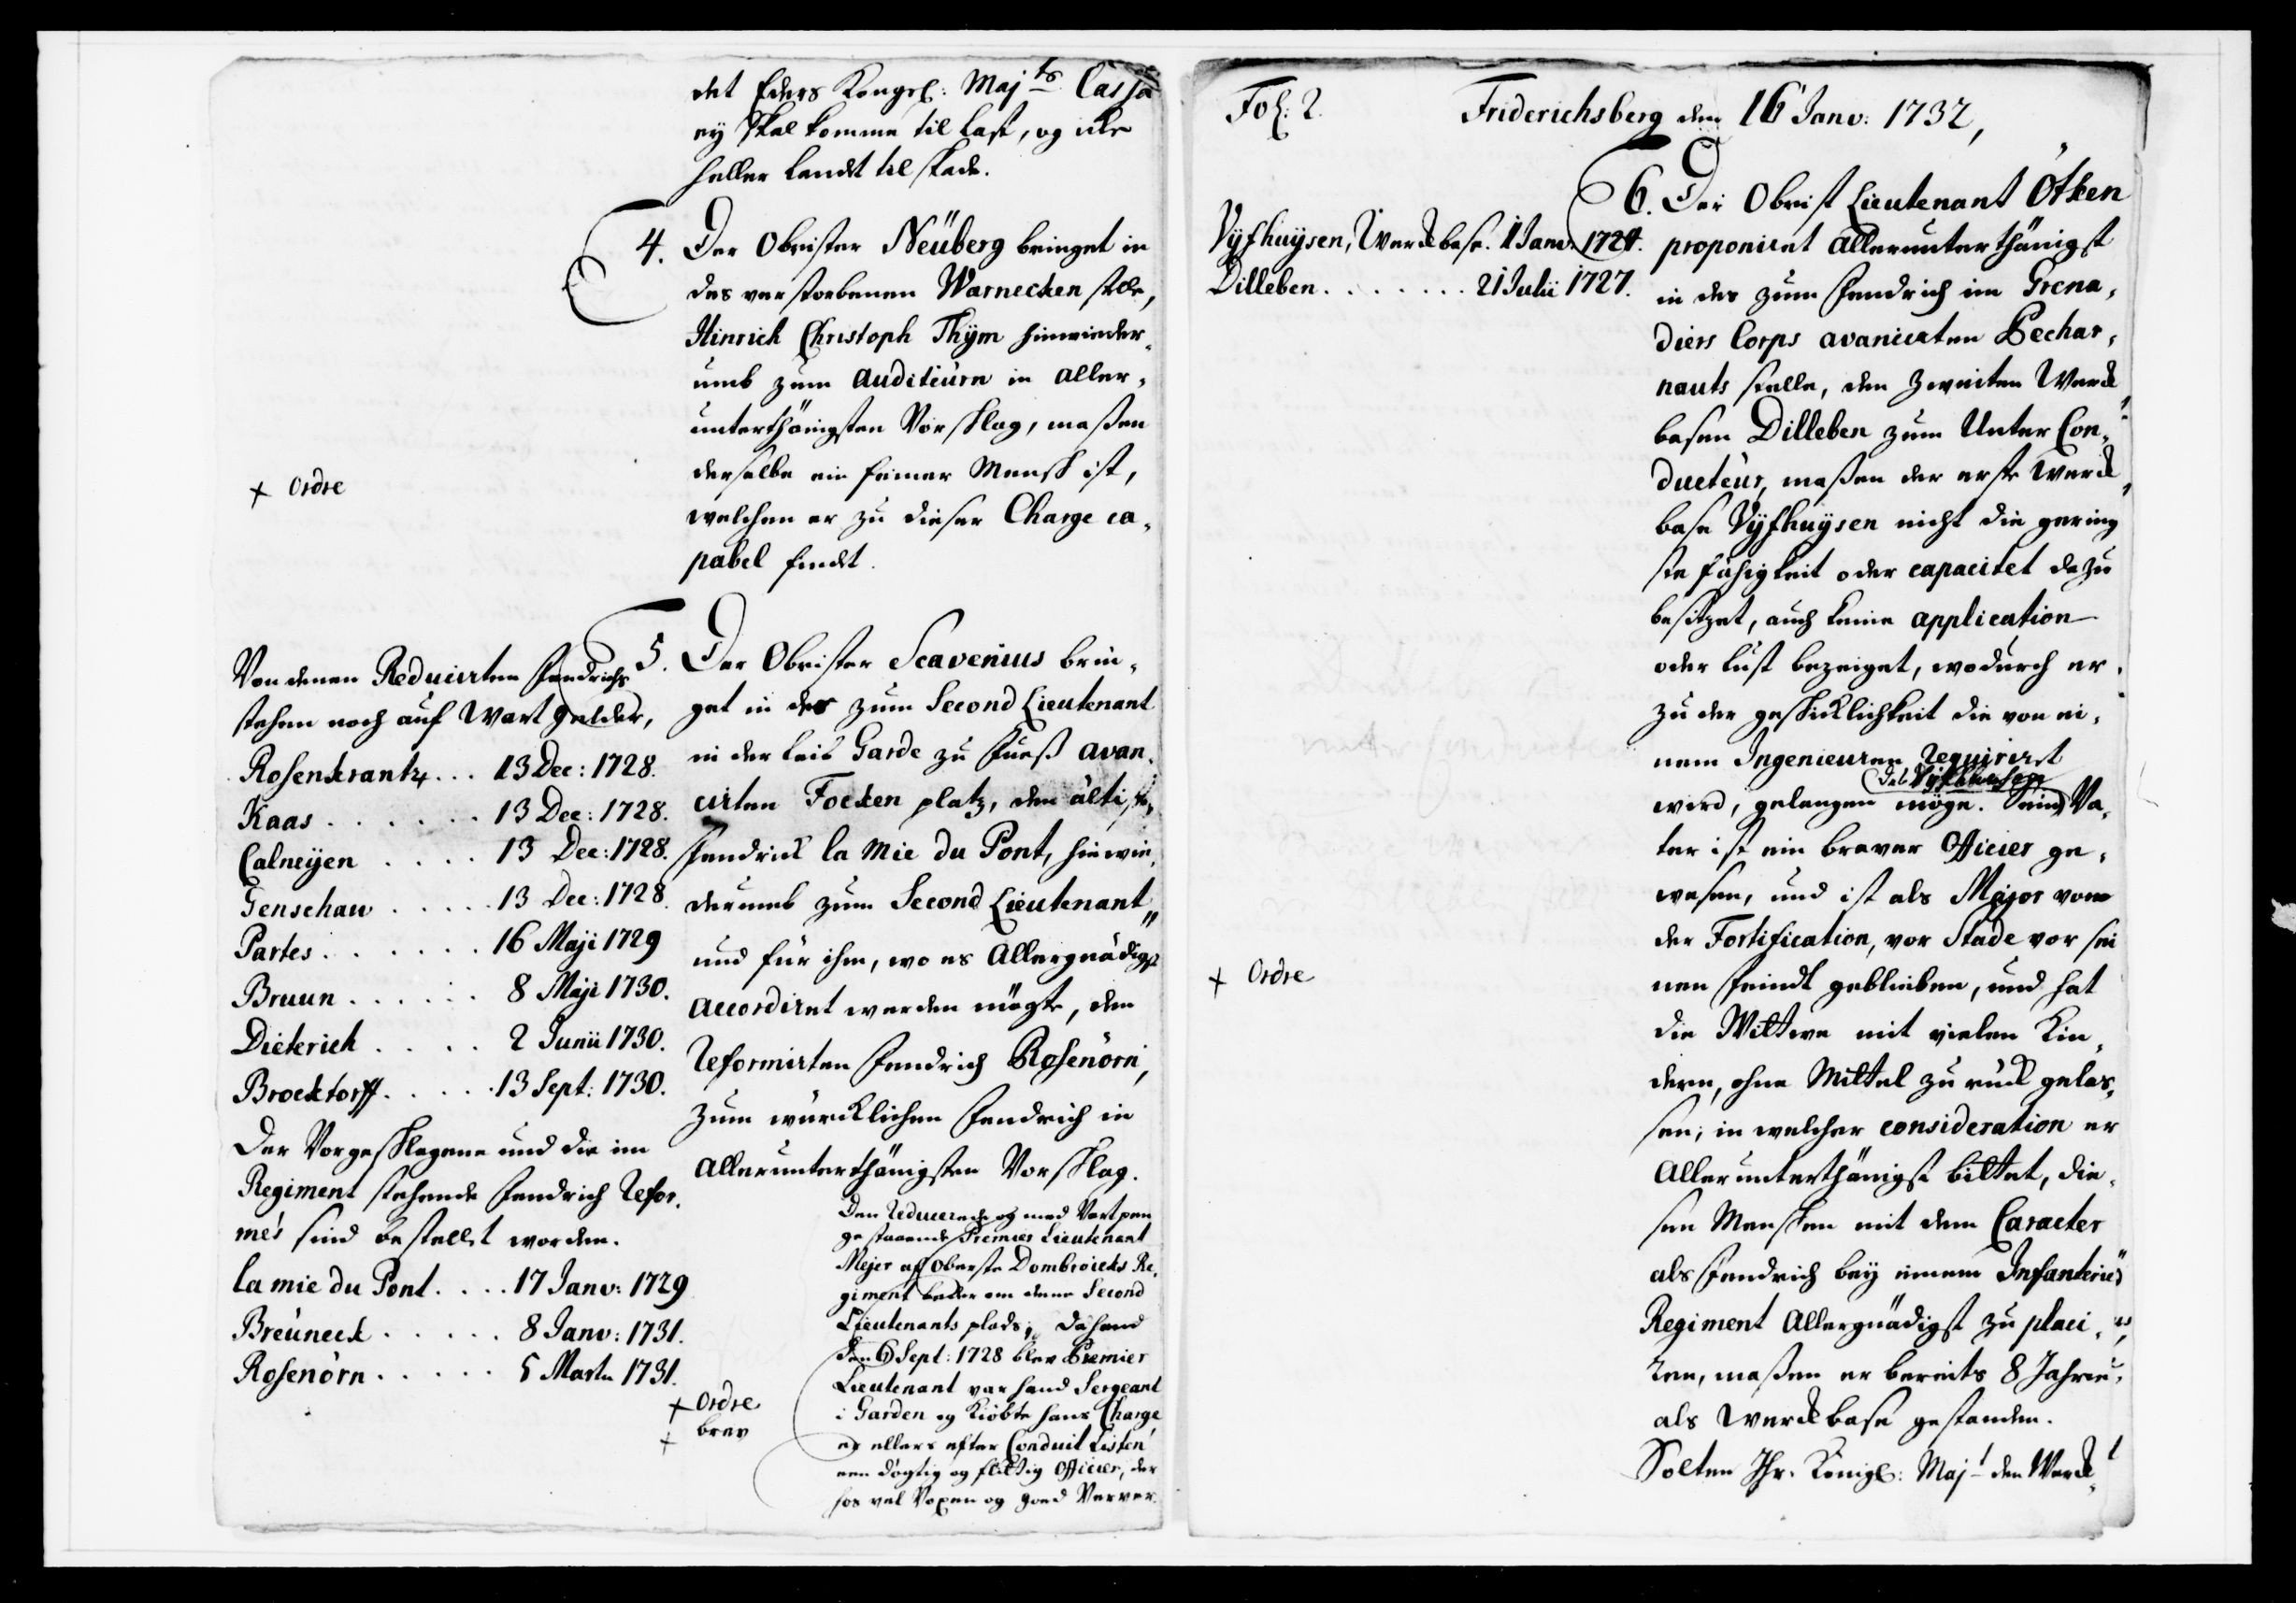 det Eders Kongel: Maj.ts Cassa
ey skal komme til last, og icke
heller landet til skade.
4. Der Obrister Neüberg bringet in
des verstorbenen Warnecken stelle,
Hinrich Christoph Thÿm hinwieder,
umb zum Auditeurn in aller,
unterthänigsten Vorschlag, maßen
derselbe ein feiner Mensch ist,
welchen er zu dieser Charge ca,
pabel findt.
+ Ordre
5. Der Obrister Scavenius brin,
get in des zum Second Lieutenant
in der leib Garde zu Fueß avan,
cirten Focken platz, den ältisten,
Fendrick la Mie du Pont, hinwie,
derumb zum Second Lieutenant
und für ihm, wo es Allergnädigst
accordiret werden mögte, den
Reformirten Fendrich Rosenörn,
zum würcklichen Fendrich in
allerunterthänigsten Vorschlag.
Von denen Reducirten Fendrichs
stehen noch auf Wart gelder,
Rosenkrantz... 13 Dec: 1728.
Kaas . . . . . . 13 Dec: 1728.
Calneÿen . . . . 13 Dec: 1728.
Genschau . . . . . 13 Dec: 1728.
Partes . . . . . . 16 Maji 1729
Bruun . . . . . . 8 Maji 1730.
Dieterich . . . . 2 Junii 1730.
Brocktorff . . . . . 13 Sept: 1730.
Der Vorgeschlagene und die im
Regiment stehende Fendrich Refor,
més sind bestellt worden.
la mie du Pont . . . . 17 Janv: 1729
Breüneck . . . . . 8 Janv: 1731.
Rosenörn . . . . . 5 Martii 1731.
Den Reducerede og med Vartpen
ge staaende Premier Lieutenant
Mejer af Oberste Dombroicks Re,
giment beder om denne Second
Lieutenants plads, da hand
den 6 Sept: 1728 blev Premier
Lieutenant var hand Sergeant
i Garden og kiöbte hans Charge
er ellers efter Conduit Listen
een dögtig og flittig Officier, der
hos vel Voxen og goed Verver.
+ Ordre
brev
+
Fol: 2. Friderichsberg den 16 Janv: 1732,
6. Der Obrist Lieutenant Ötken
proponiret allerunterthänigst
in des zum Fendrich im Grena,
diers Corps avancirten Bechar,
nauts stelle, den zweiten Werck,
basen Dilleben zum Unter Con,
ducteur, maßen der erste Werck,
base Vÿfhuÿsen nicht die gering
ste fähigkeit oder capacitet dazu
besitzet, auch keine application
oder lust bezeiget, wodurch er
zu der geschicklichkeit die von ei,
nem Ingenieuren requiriret
wird, gelangen möge. Sein Va,
des Vÿfhuÿsen
ter ist ein braver Officier ge,
wesen, und ist als Major von
der Fortification, vor Stade vor sei
nen Feindt geblieben, und hat
die Wittwe mit vielen Kin,
dern, ohne Mittel zu rück gelas,
sen; in welcher consideration er
Allerunterthänigst bittet, die,
sen Menschen mit dem Caracter
als Fendrich bey einem Infanterie
Regiment Allergnädigst zu placi,
ren, maßen er bereits 8 Jahre
als Werckbase gestanden.
Solten Ihr. Königl: Majt den Werck,
Vÿfhuÿsen, Werckbase. 1 Janv: 1724.
Dilleben . . . . . . . 21 Julii 1727.
+ Ordre